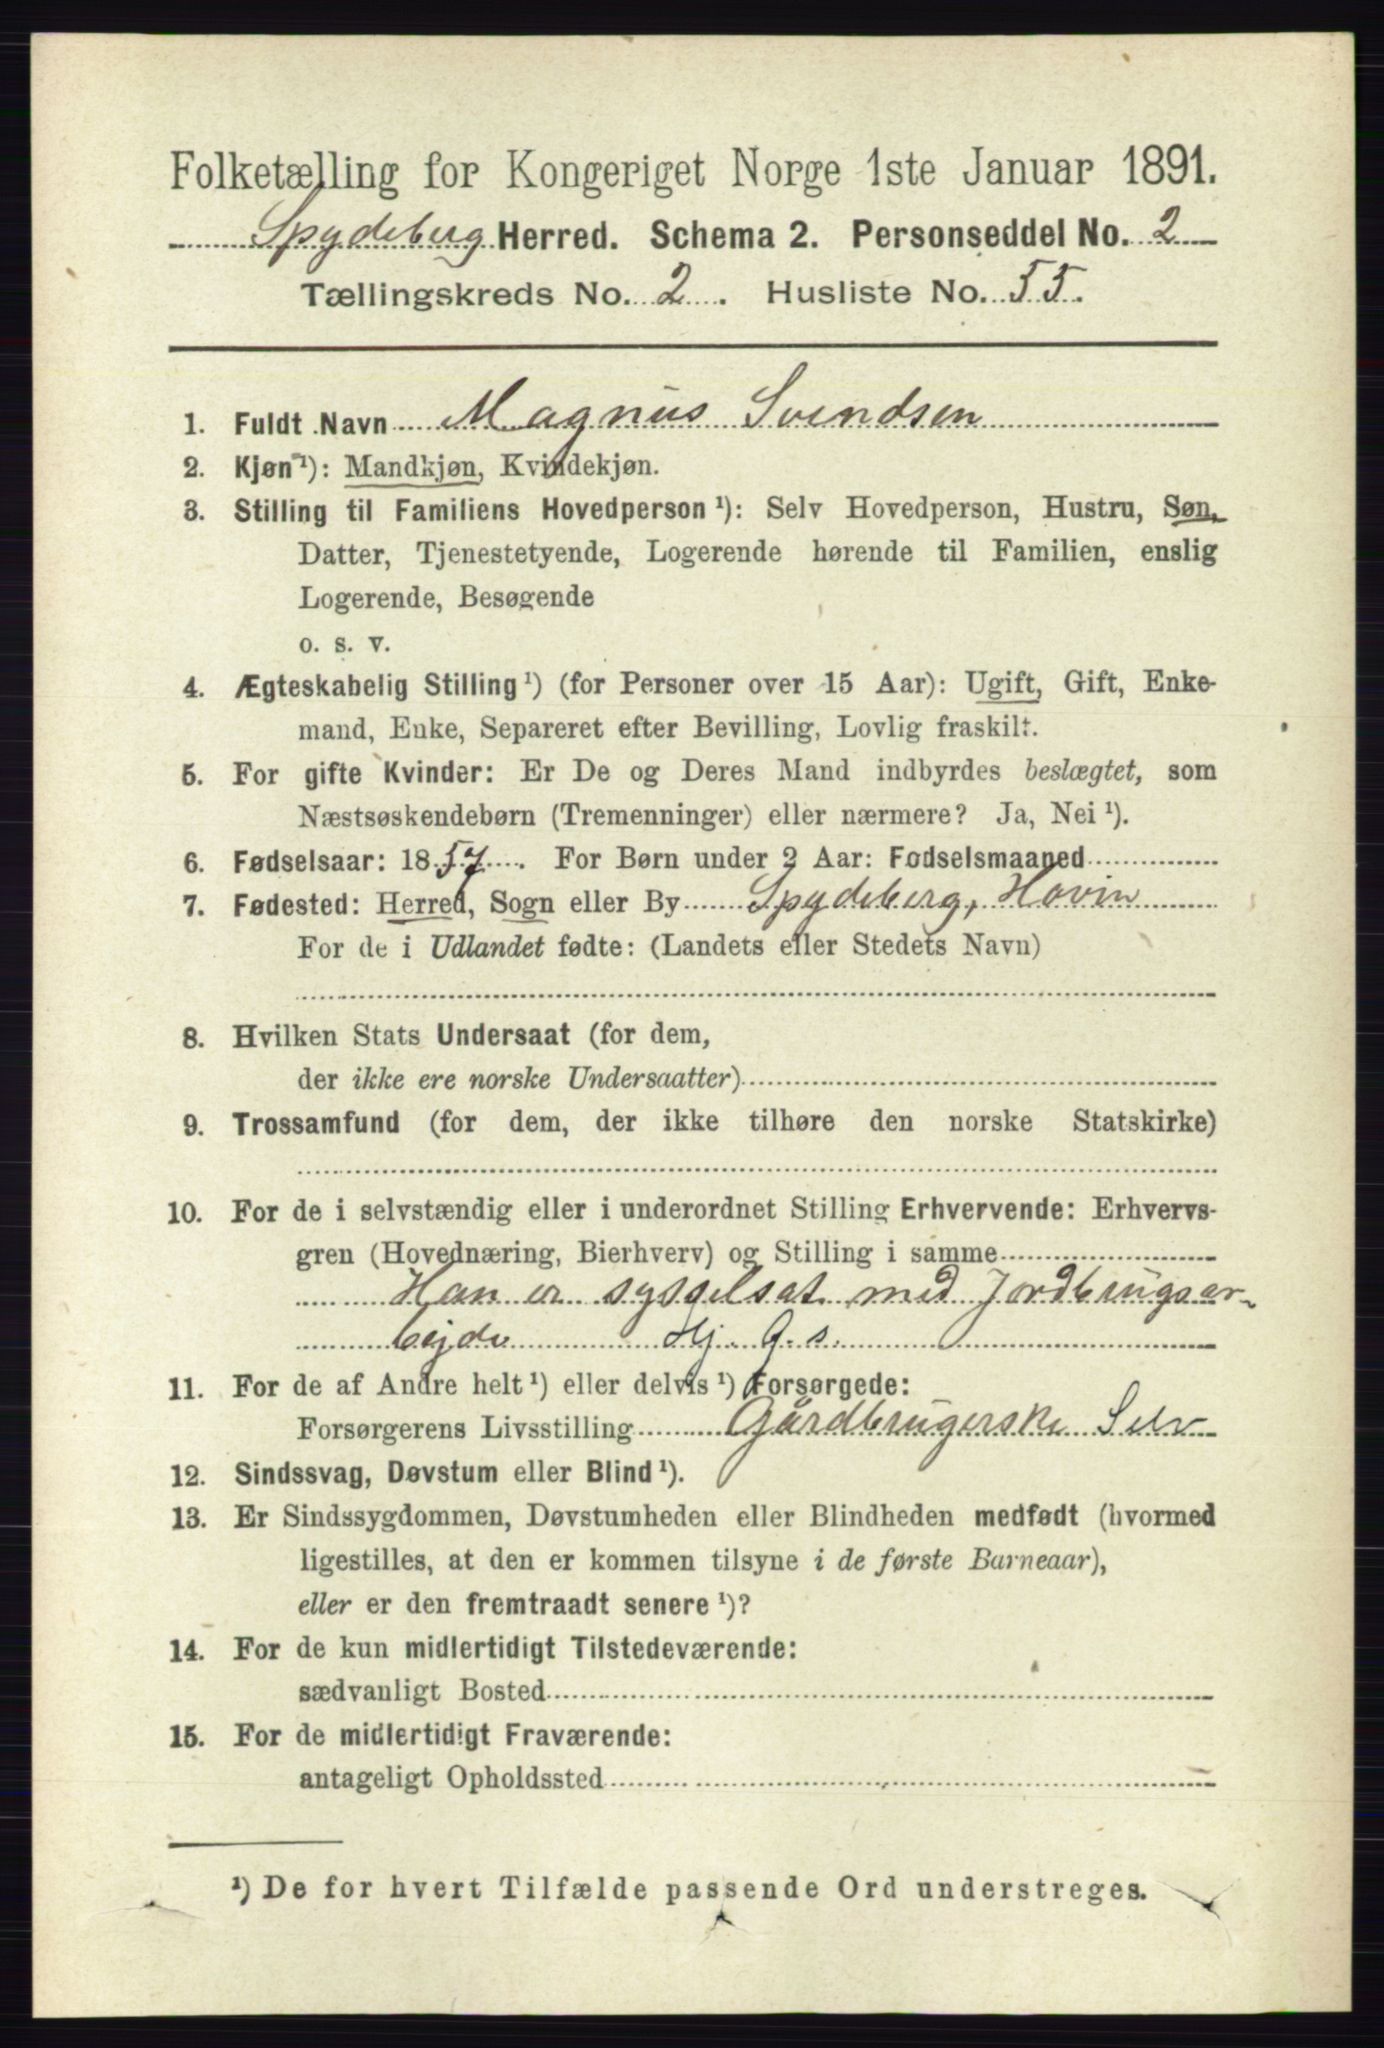 Folketælling for Kongeriget Norge 1ste Januar 1891.
Spydeberg Herred. Schema 2. Personseddel No. 2
Tællingskreds No. 2. Husliste No. 55.
1. Fuldt Navn Magnus Svendsen
2. Kjøn¹): Mandkjøn, Kvindekjøn.
3. Stilling til Familiens Hovedperson¹): Selv Hovedperson, Hustru, Søn,
Datter, Tjenestetyende, Logerende hørende til Familien, enslig
Logerende, Besøgende
o. s. v.
4. Ægteskabelig Stilling¹) (for Personer over 15 Aar): Ugift, Gift, Enke-
mand, Enke, Separeret efter Bevilling, Lovlig fraskilt.
5. For gifte Kvinder: Er De og Deres Mand indbyrdes beslægtet, som
Næstsøskendebørn (Tremenninger) eller nærmere? Ja, Nei¹).
6. Fødselsaar: 1857. For Børn under 2 Aar: Fødselsmaaned
7. Fødested: Herred, Sogn eller By Spydeberg, Hovin
For de i Udlandet fødte: (Landets eller Stedets Navn)
8. Hvilken Stats Undersaat (for dem,
der ikke ere norske Undersaatter)
9. Trossamfund (for dem, der ikke tilhøre den norske Statskirke)
10. For de i selvstændig eller i underordnet Stilling Erhvervende: Erhvervs-
gren (Hovednæring, Bierhverv) og Stilling i samme
Han er sysselsat med Jordbrugsar-
bejde Hj. G. s.
11. For de af Andre helt¹) eller delvis¹) Forsørgede:
Forsørgerens Livsstilling Gårdbrugerske Selv
12. Sindssvag, Døvstum eller Blind¹).
13. Er Sindssygdommen, Døvstumheden eller Blindheden medfødt (hvormed
ligestilles, at den er kommen tilsyne i de første Barneaar),
eller er den fremtraadt senere¹)?
14. For de kun midlertidigt Tilstedeværende:
sædvanligt Bosted
15. For de midlertidigt Fraværende:
antageligt Opholdssted
¹) De for hvert Tilfælde passende Ord understreges.